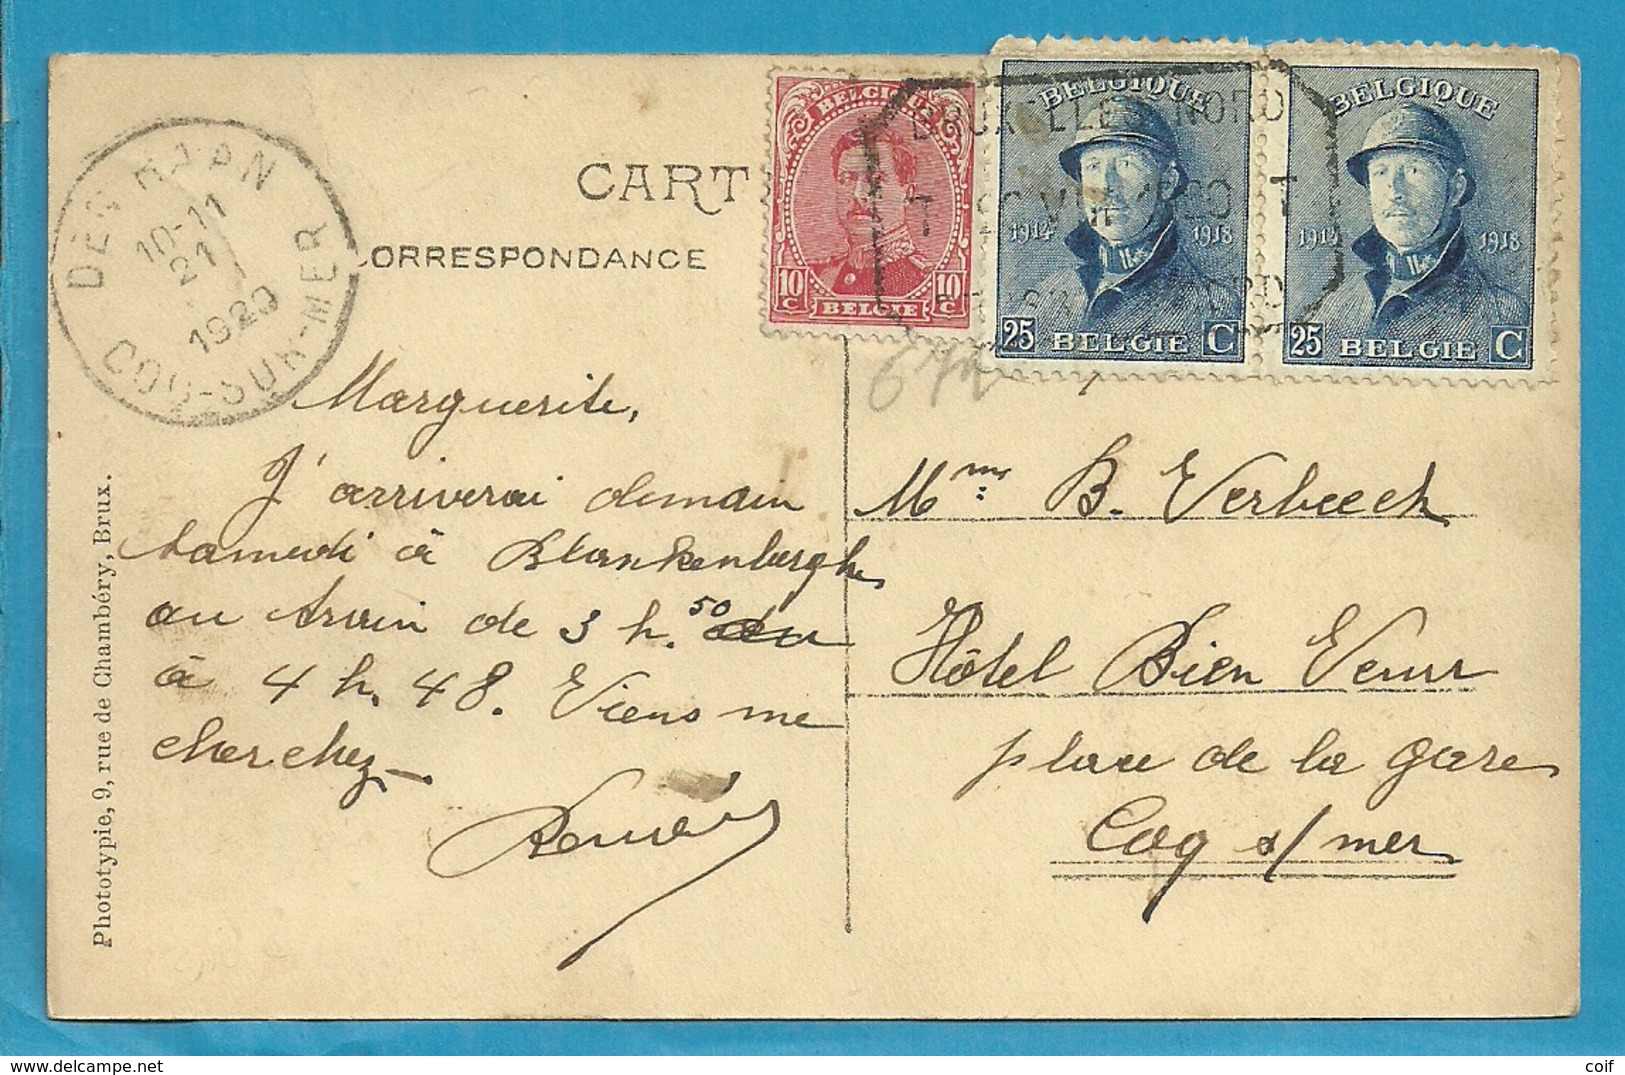 CART
CORRESPONDANCE
DE HAAN
10-11
21
1920
COQ-SUR-MER
BELGIQUE
10 C 10 C
BELGIE
BELGIQUE
1914 1918
25 BELGIE C
BELGIQUE
1914 1918
25 BELGIE C
BRUXELLES NORD
T 1920 T
Marguerite,
J'arriverai demain
samedi à Blankenberghe
au train de 3 h. 50
à 4 h. 48. Viens me
cherchez
Mme B. Verbeeck
Hôtel Bien Venu
place de la gare
Coq s/mer
Phototypie, 9, rue de Chambéry, Brux.
coif